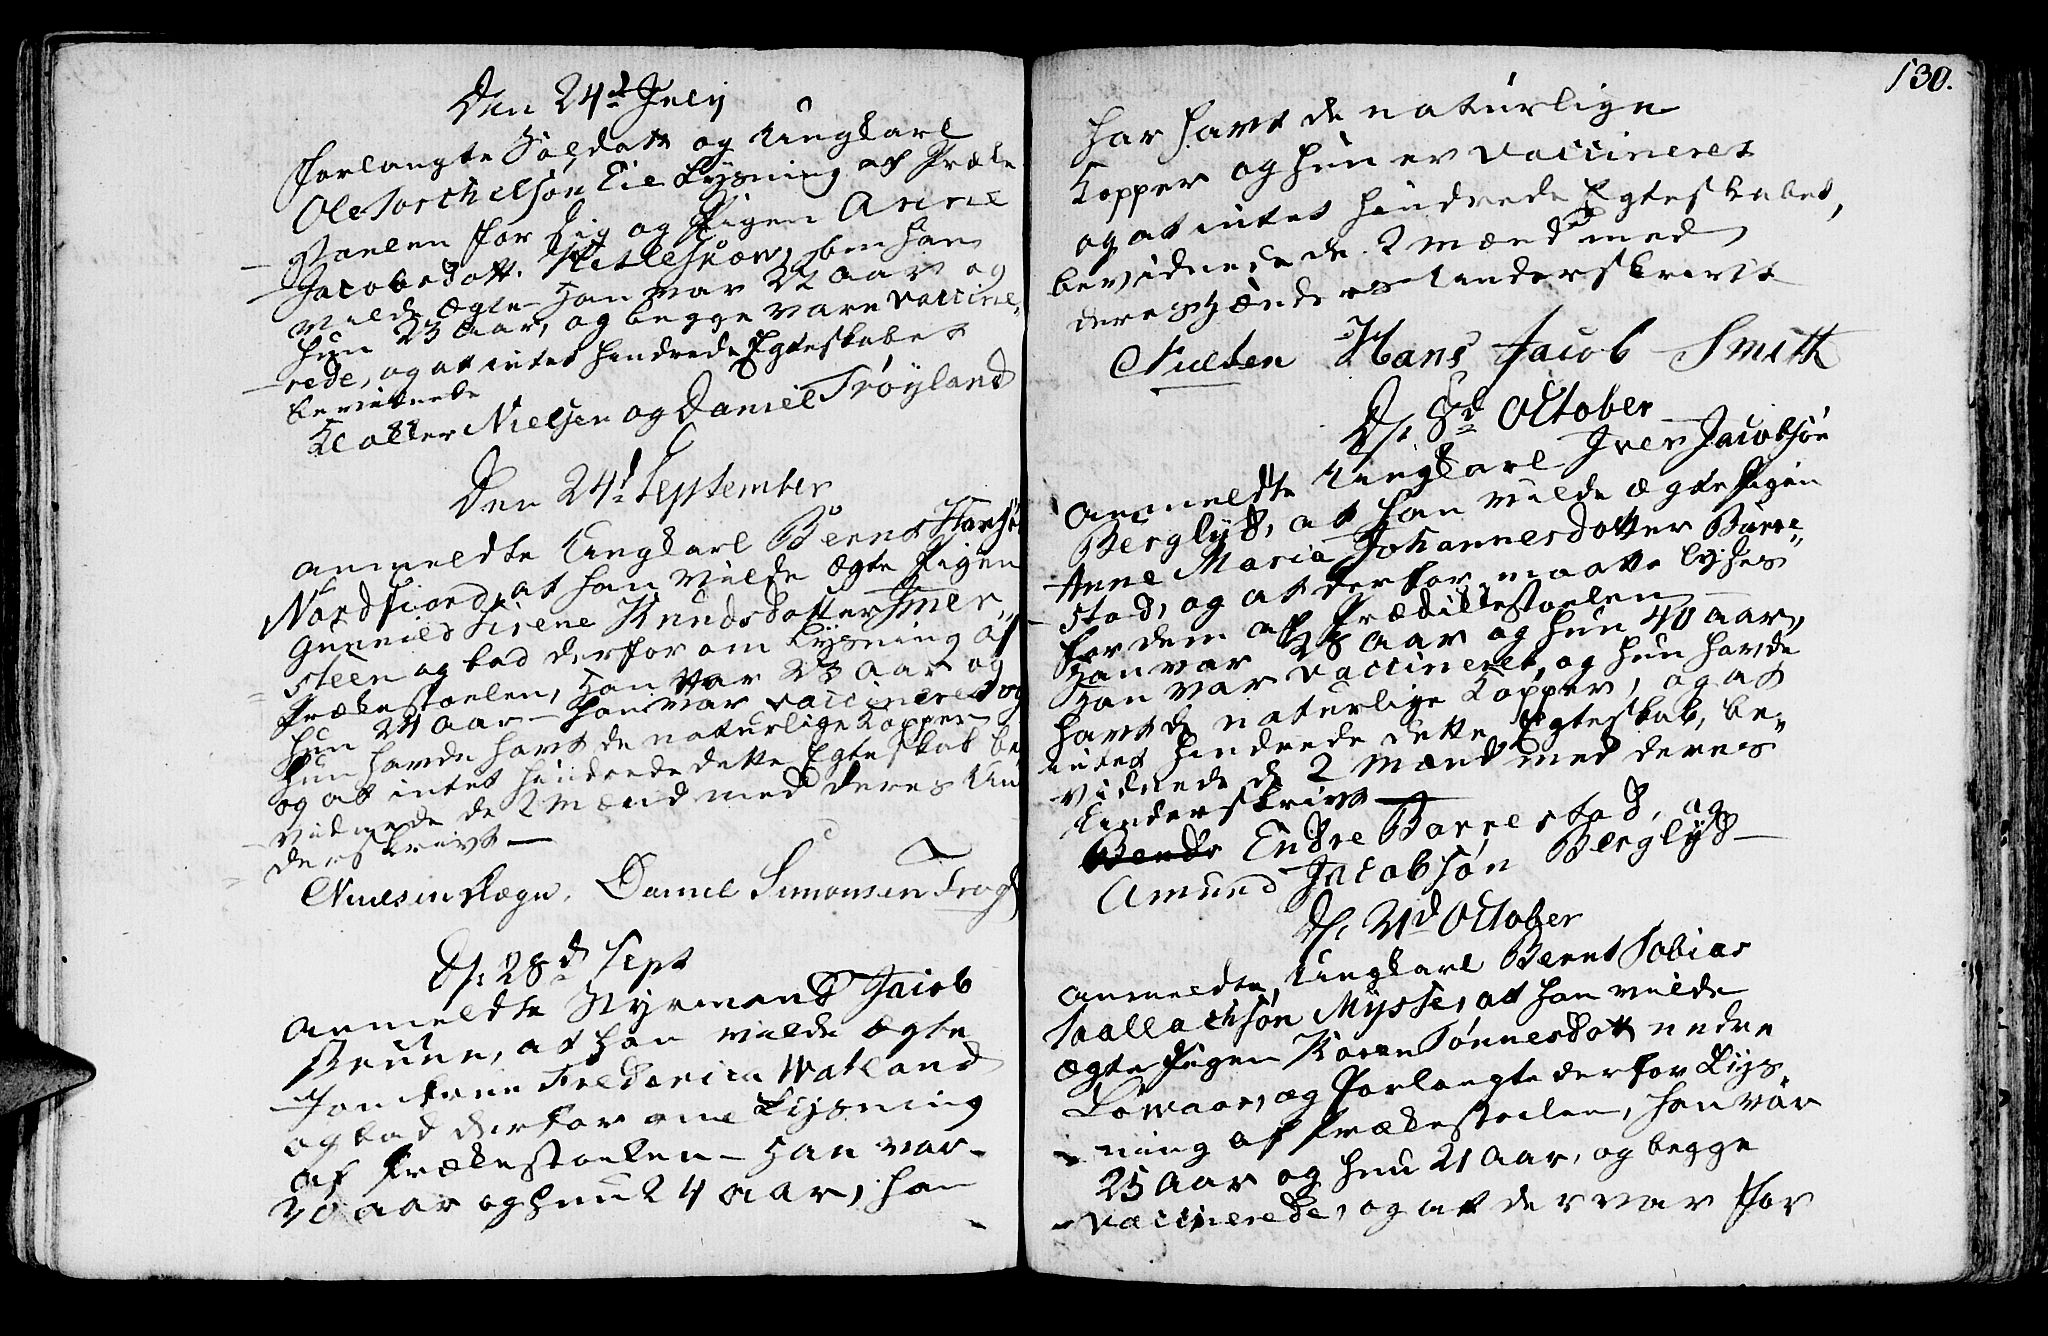 Den 24d July
forlangte Soldatt og Ungkarl
Ole Torchelsøn Eie Lysning af Præke
stoelen for sig og Pigen Anne
Jacobsdott. ben han
vilde Ægte - Han var 22 aar og
hun 23 aar, og begge vare vaccine,,
rede, og at intet hindrede Egteskabet
bevidnede
Klatter Nielsen og Daniel Trøyland
Den 24d September
anmeldte Ungkarl Bernt Hansø
Nordfiord, at han vilde ægte Pigen
Gunnild Sirene Knudsdotter Jmer,,
steen og bad derfor om Lysning af
Prækestoelen, Han var 23 aar og
hun 24 aar - han var vaccineret og
hun havde havt de naturlige Kopper
og at intet hindrede dette Egteskab be
vidnede de 2 Mænd med deres Un
derskrivt -
Daniel Simonsen
D. 28d Sept
anmeldte Styrmand Jacob
Bruun, at han vilde ægte
Jomfrue Frederica Watland
og bad derfor om Lysning
af Prækestoelen - Han var
30 aar og hun 24 aar, han
130.
har havt de naturlige
Kopper og hun er vaccineret
og at intet hindrede Egteskabet,
bevidnede de 2 Mænd med
deres Hænders Underskrivt
Hans Jacob Smith
D. 8d October
anmeldte Ungkarl Iver Jacobsøn
Berglyd, at han vilde ægte Pigen
Anne Maria Johannesdotter Barre,,
stad, og at der for maatte lyses
for dem af Prædikestoelen -
Han var 28 aar og hun 40 aar,
Han var vaccineret, og hun havde
havt de naturlige Kopper, og at
intet hindrede dette Egteskab, be,,
vidnede de 2 Mænd med deres
Underskrivt -
Endre Barrestad, og
Amund Jacobsøn Berglyd -
D. 21d October
anmeldte Ungkarl Bernt Tobias
Tallachsøn Mysse, at han vilde
ægte Pigen Karen Tønnesdott nedre
Lowaas, og forlangte derfor Lys,,
ning af Prækestoelen, han var
25 Aar og hun 21 Aar, og begge
vaccinerede, og at der var for